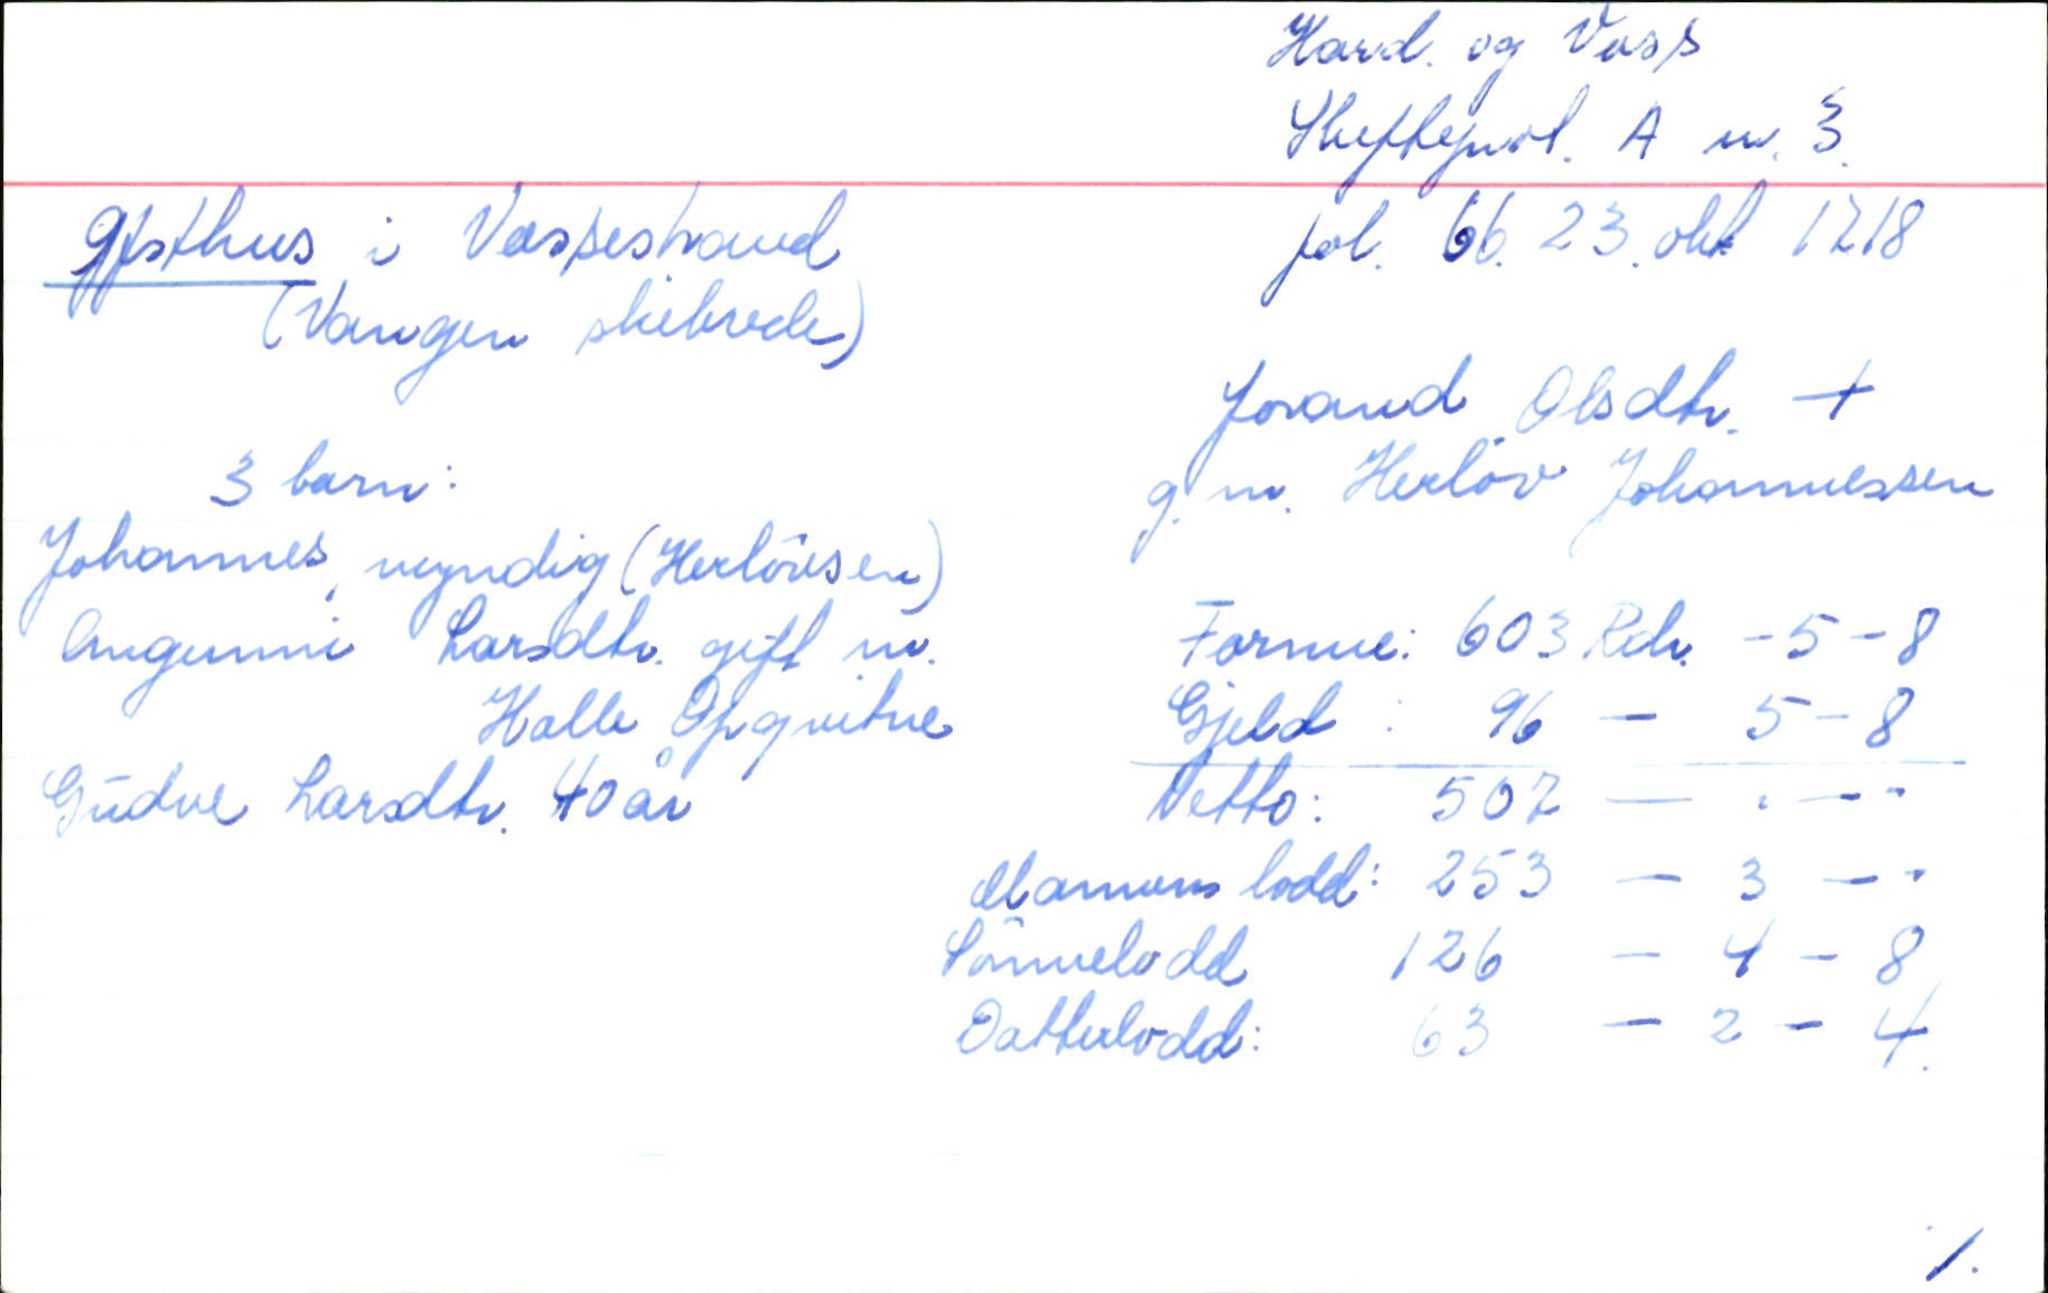 Hard. og Voss
Skifteprot. A nr. 3.
fol. 66. 23. okt 1718
Gjfsthus i Vossestrand
(Vangen skibrede)
Jorand Olsdtr. +
g. m. Herlöv Johannessen
3 barn:
Johannes, myndig (Herlövsen)
Angunni Larsdtr. gift m.
Halle Opqvitne
Gudve Larsdtr. 40 år
Formue: 603 Rdr. - 5 - 8
Gjeld : 96 - 5 - 8
Netto: 507 - . - .
Mannens lodd: 253 - 3 - .
Sönnelodd 126 - 4 - 8
Datterlodd: 63 - 2 - 4.